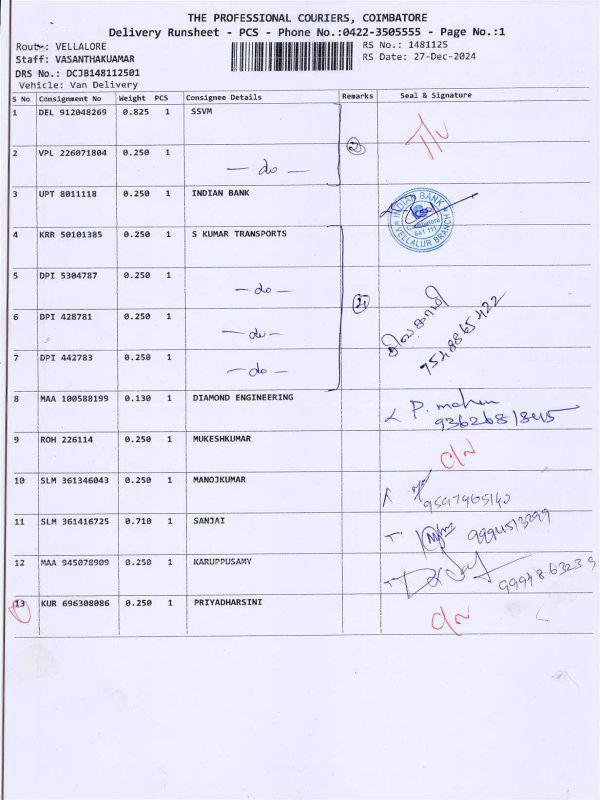 THE PROFESSIONAL COURIERS, COIMBATORE
Delivery Runsheet - PCS - Phone No.:0422-3505555 - Page No.:1
Route: VELLALORE
RS No.: 1481125
Staff: VASANTHAKUAMAR
RS Date: 27-Dec-2024
DRS No.: DCJB148112501
Vehicle: Van Delivery
S No Consignment No Weight PCS Consignee Details Remarks Seal & Signature
1 DEL 912048269 0.825 1 SSVM
2 VPL 226071804 0.250 1 — do — 2
3 UPT 8011118 0.250 1 INDIAN BANK
INDIAN BANK
Coimbatore
641 111
VELLALUR BRANCH
4 KRR 50101385 0.250 1 S KUMAR TRANSPORTS
5 DPI 5304787 0.250 1 — do —
6 DPI 428781 0.250 1 — do —
7 DPI 442783 0.250 1 — do —
7548865422
8 MAA 100588199 0.130 1 DIAMOND ENGINEERING P. mohan
9 ROH 226114 0.250 1 MUKESHKUMAR
10 SLM 361346043 0.250 1 MANOJKUMAR
11 SLM 361416725 0.710 1 SANJAI
12 MAA 945078909 0.250 1 KARUPPUSAMY
13 KUR 696308086 0.250 1 PRIYADHARSINI